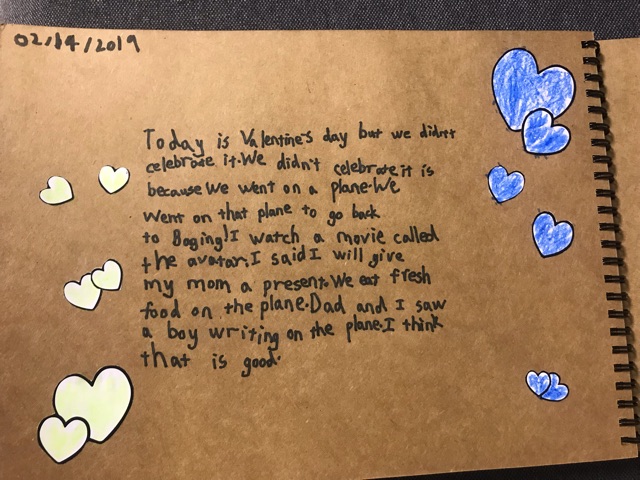 02/14/2019
Today is Valentine's day but we didn't
celebrate it.We didn't celebrate it is
because we went on a plane.We
went on that plane to go back
to Baging!I watch a movie called
the avatar.I said I will give
my mom a present.We eat fresh
food on the plane.Dad and I saw
a boy writing on the plane.I think
that is good.